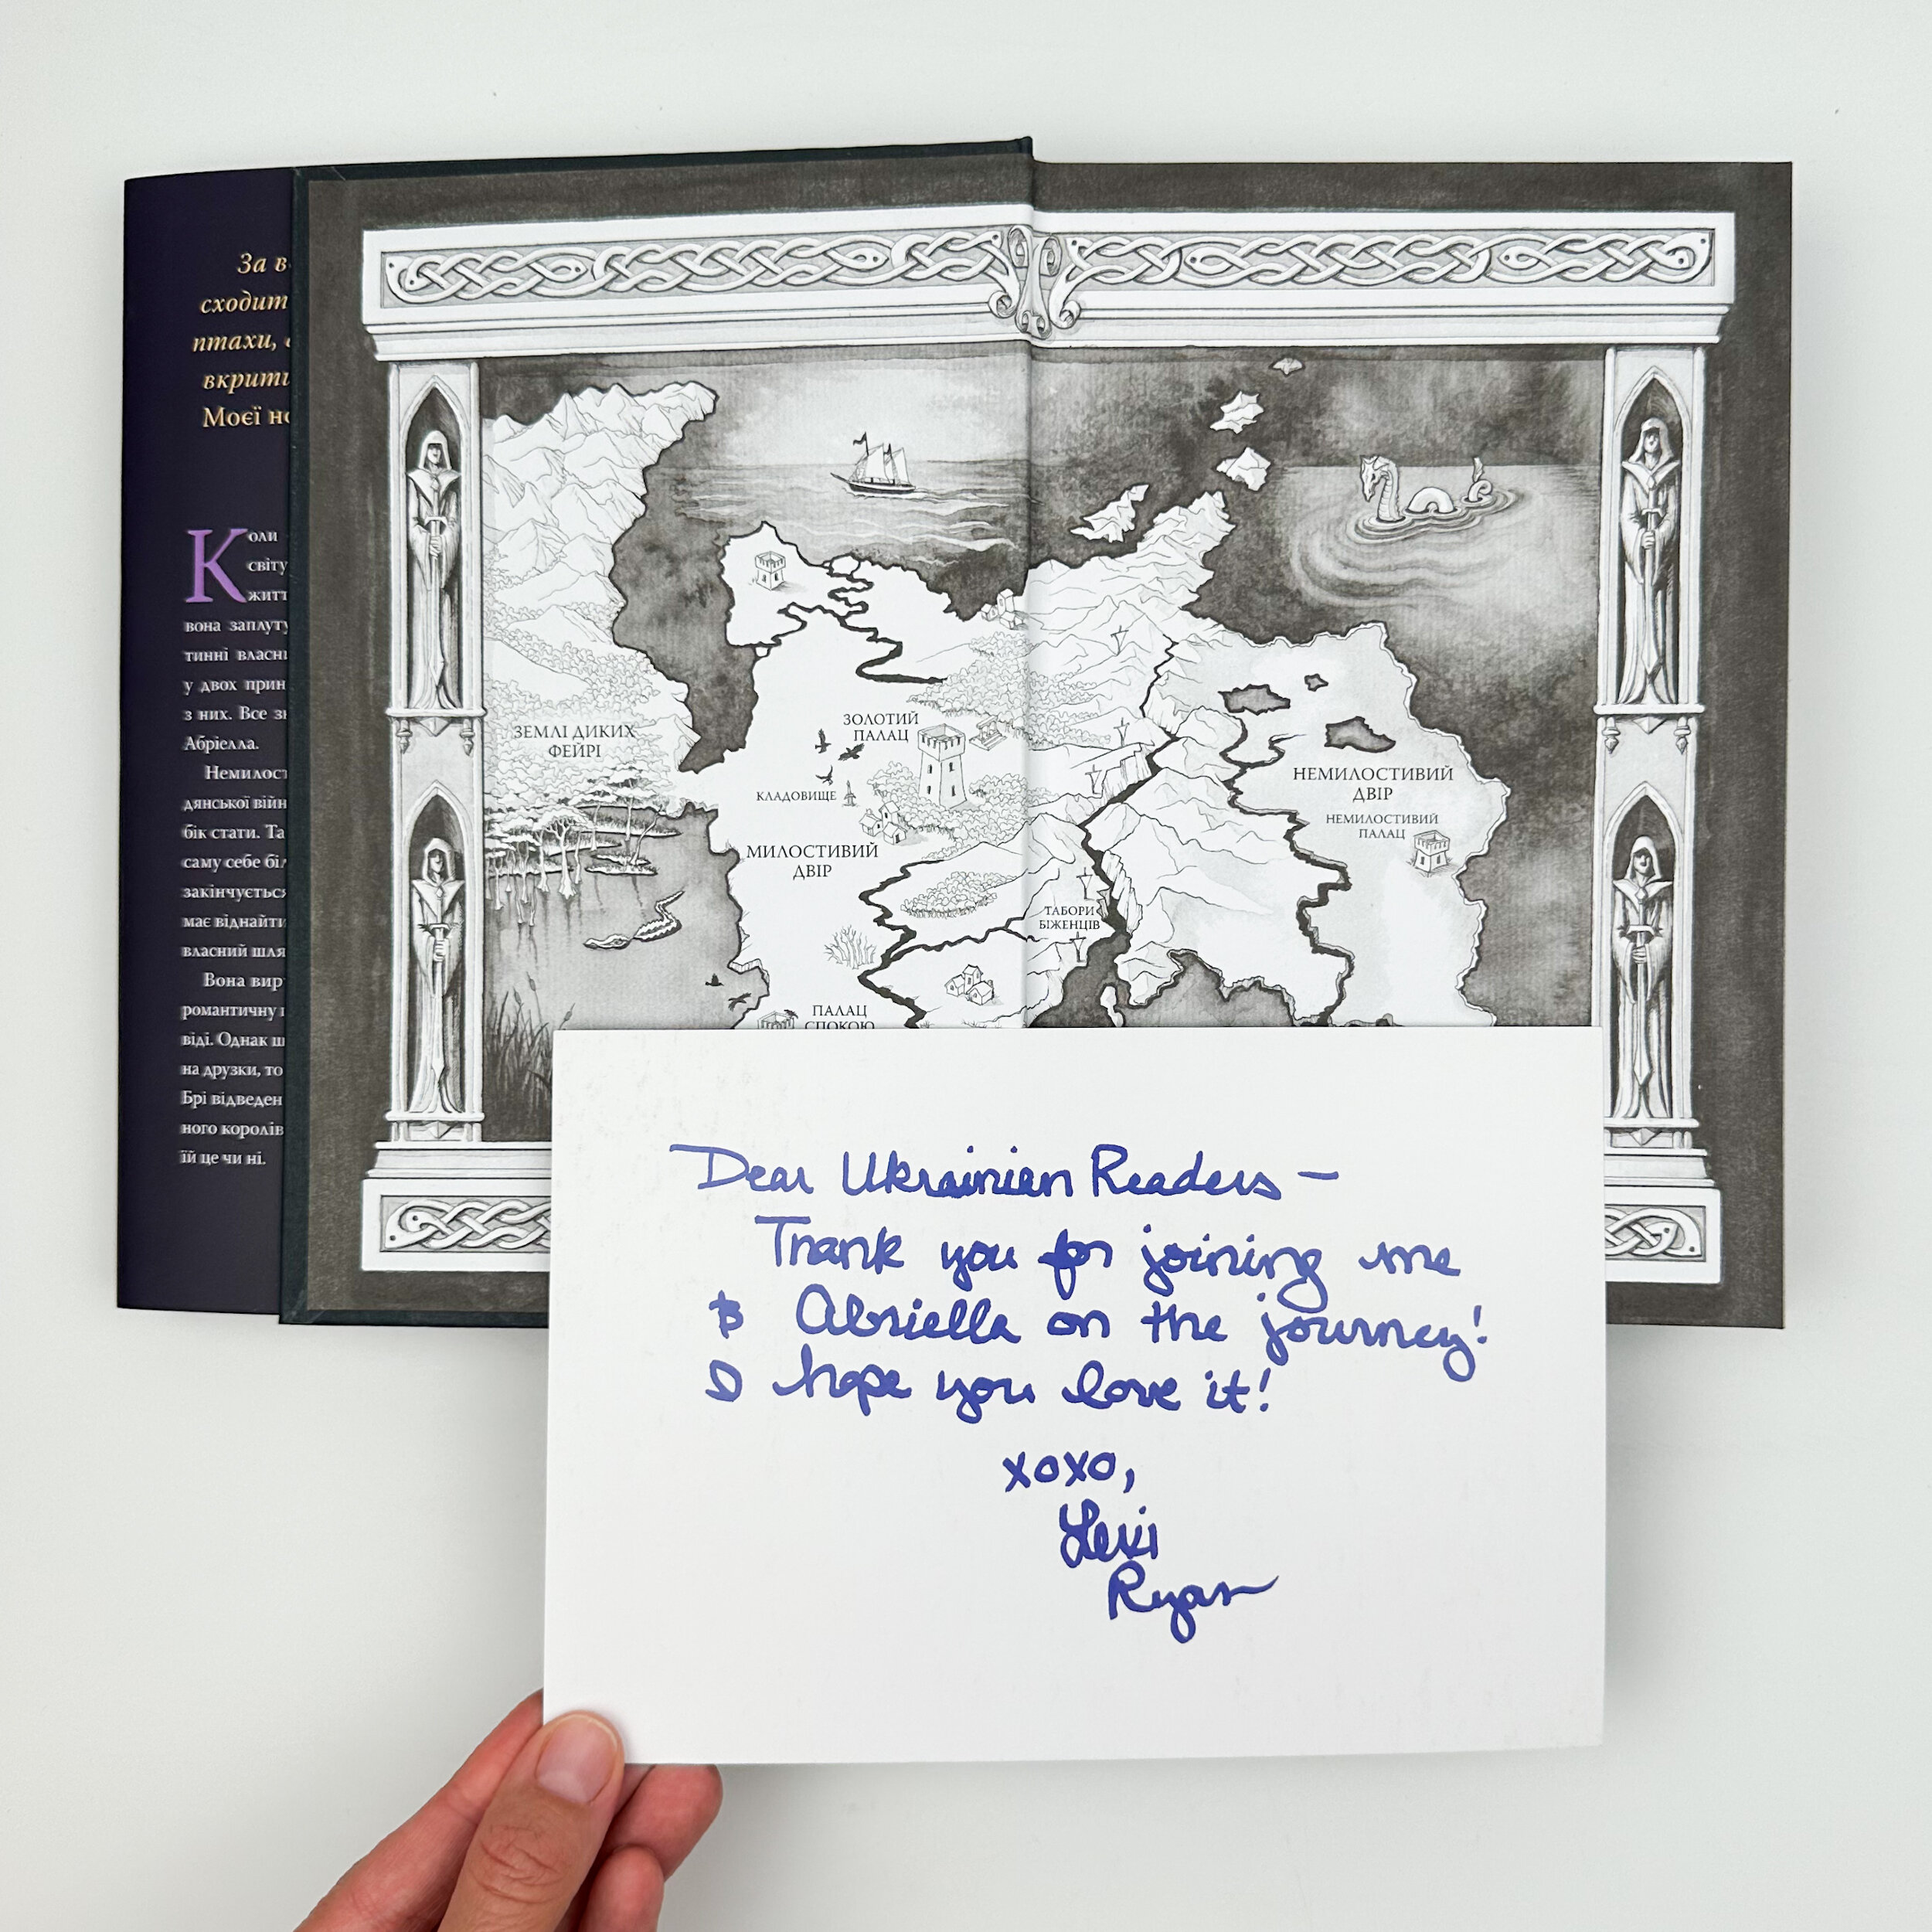 За в
сходит
птахи,
вкрити
Моєї но
Коли
світу
житт
вона заплуту
тинні власн
у двох прин
з них. Все зн
Абріелла.
Немилост
дянської війн
бік стати. Та
саму себе біл
закінчується
має віднайти
власний шля
Вона вир
романтичну
віді. Однак ш
на друзки, то
Брі відведен
ного королів
їй це чи ні.
ЗЕМЛІ ДИКИХ
ФЕЙРІ
ЗОЛОТИЙ
ПАЛАЦ
КЛАДОВИЩЕ
МИЛОСТИВИЙ
ДВІР
НЕМИЛОСТИВИЙ
ДВІР
НЕМИЛОСТИВИЙ
ПАЛАЦ
ТАБОРИ
БІЖЕНЦІВ
ПАЛАЦ
СПОКОЮ
Dear Ukrainian Readers —
Thank you for joining me
& Abriella on the journey!
I hope you love it!
xoxo,
Lexi
Ryan